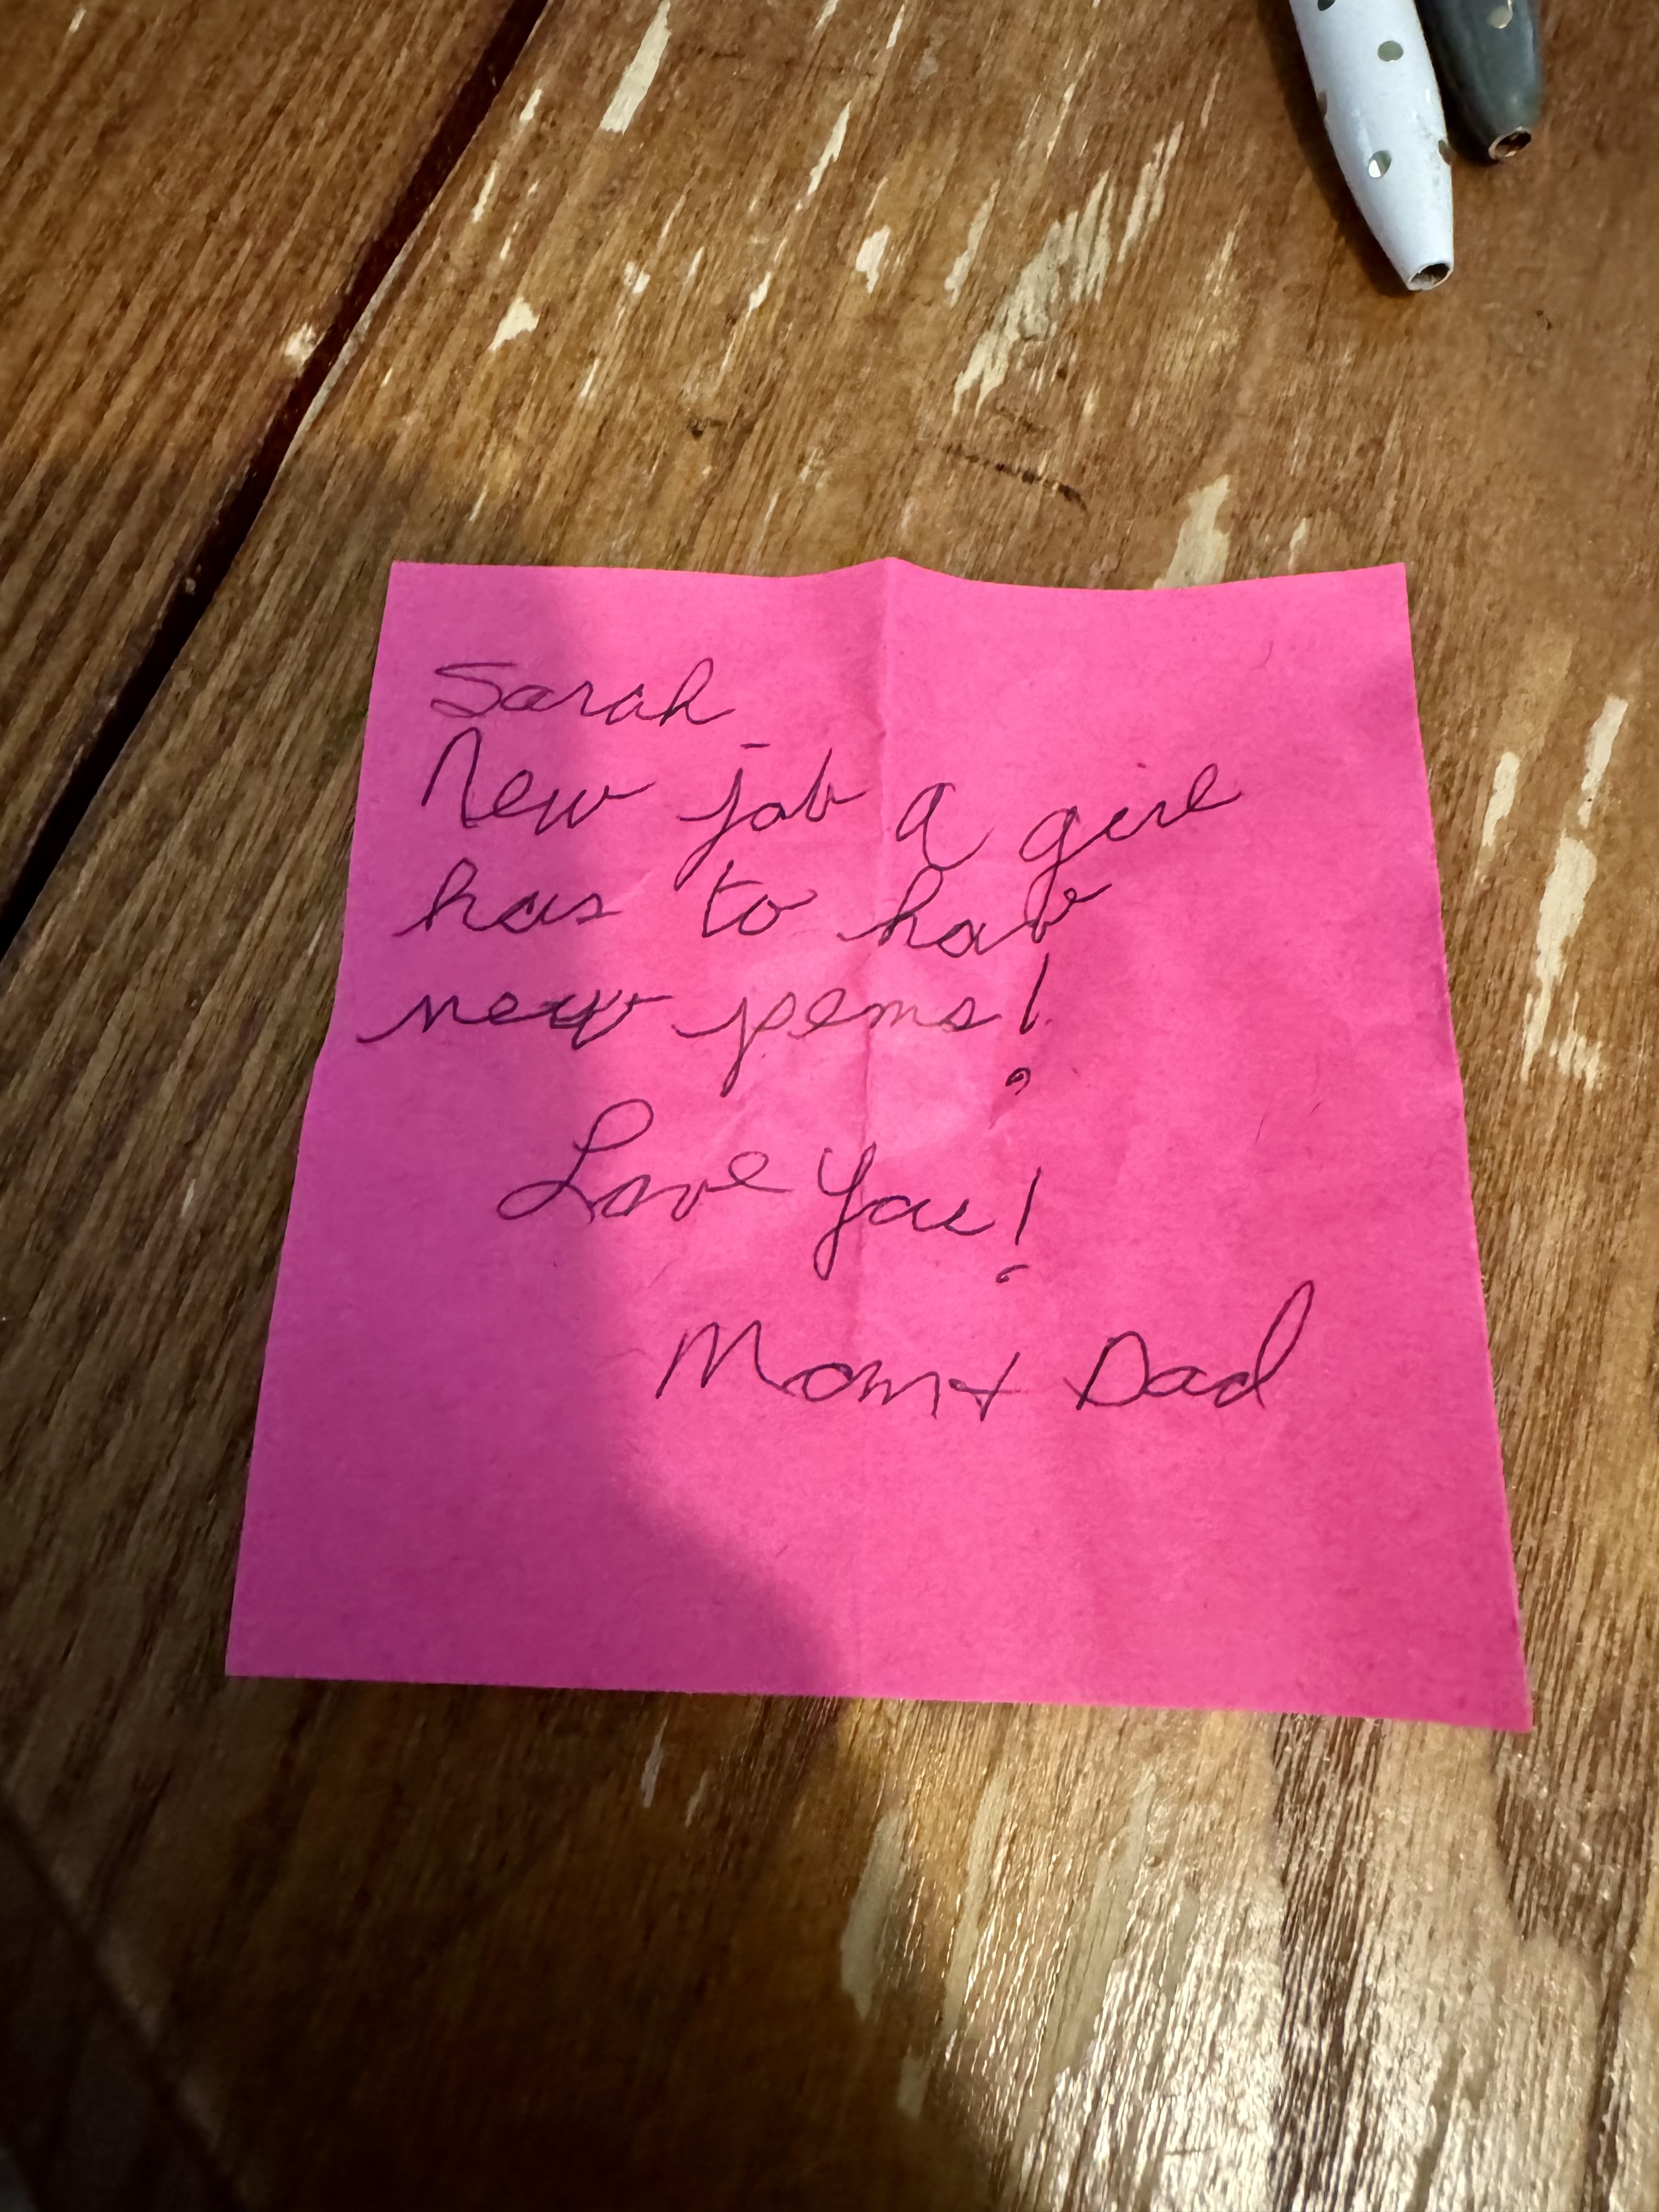 Sarah
New job a girl
has to have
new pens!
Love You!
Mom + Dad